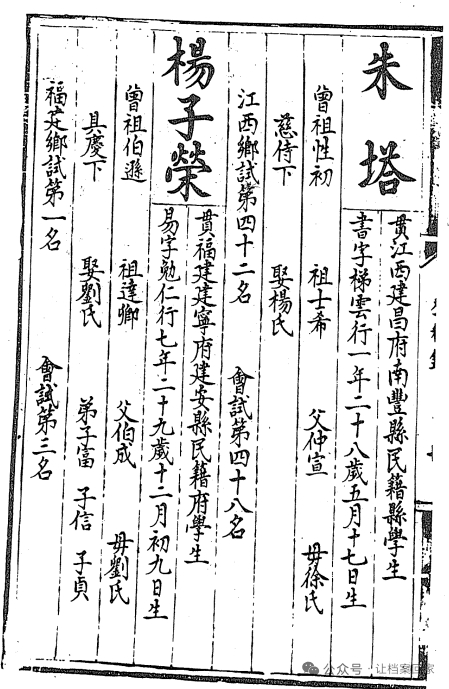 朱塔
貫江西建昌府南豐縣民籍縣學生
書字梯雲行一年二十八歲五月十七日生
曾祖性初 祖士希 父仲宣 母徐氏
慈侍下 娶楊氏
江西鄉試第四十二名 會試第四十八名
楊子榮
貫福建建寧府建安縣民籍府學生
易字勉仁行七年二十九歲十二月初九日生
曾祖伯遜 祖達卿 父伯成 母劉氏
具慶下 娶劉氏 弟子富 子信 子貞
福建鄉試第一名 會試第三名
公众号·让档案回家